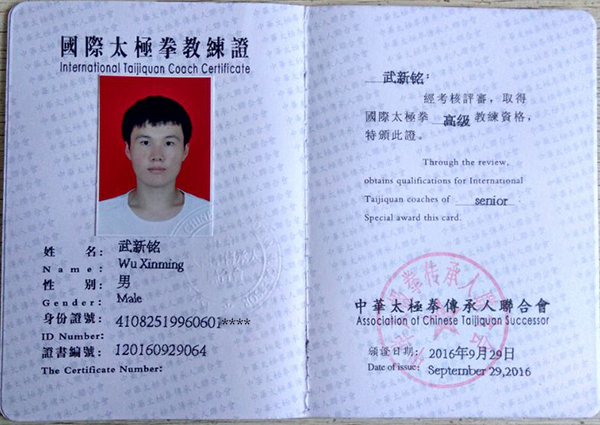 國際太極拳教練證
International Taijiquan Coach Certificate
姓 名: 武新铭
Name: Wu Xinming
性 别: 男
Gender: Male
身份證號: 41082519960601****
ID Number:
證書編號: 120160929064
The Certificate Number:
武新铭:
經考核評審,取得
國際太極拳 高级 教練資格,
特頒此證。
Through the review,
obtains qualifications for International
Taijiquan coaches of senior
Special award this card.
中華太極拳傳承人聯合會
Association of Chinese Taijiquan Successor
頒證日期: 2016年9月29日
Date of issue: September 29,2016